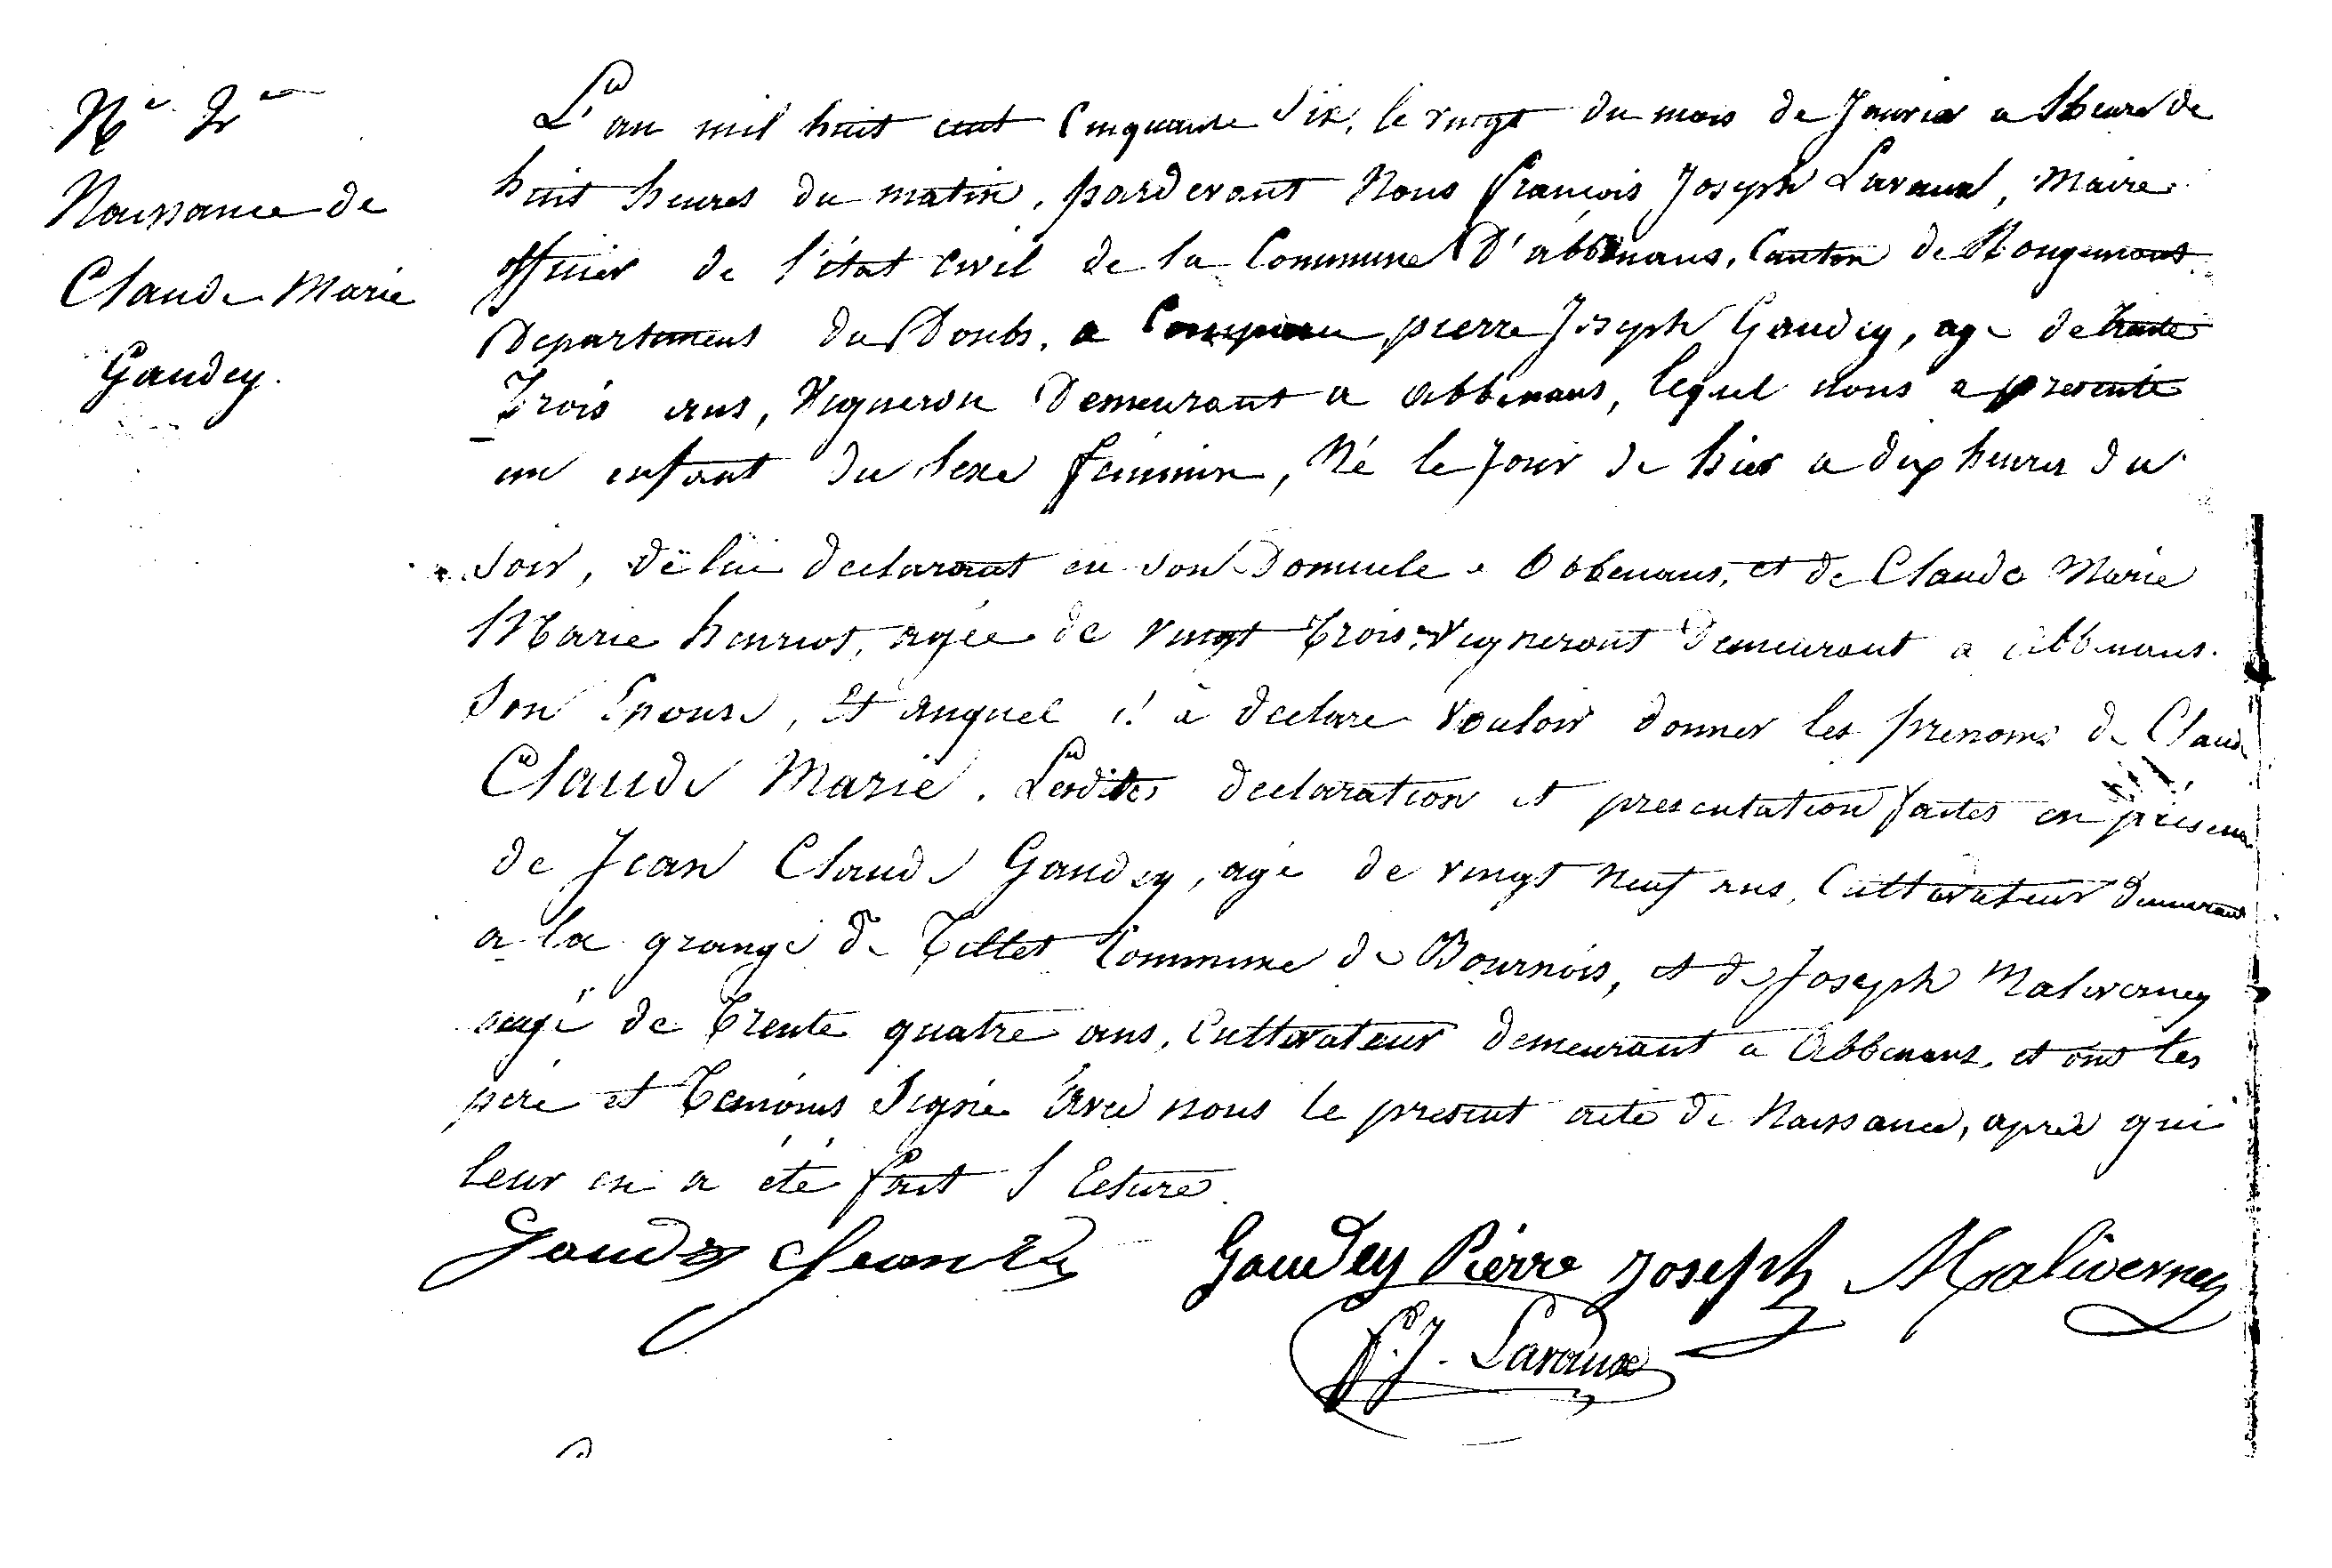 Naissance de
Claude Marie
Gaudey.
L'an mil huit cent cinquante six, le vingt du mois de Janvier a l'heure de
huit heures du matin, pardevant Nous françois Joseph Lavaux, Maire
officier de l'état civil de la Commune D'abbenans, Canton de Rougemont
Departement du Doubs, a Comparu pierre Joseph Gaudey, agé de trente
Trois ans, Vigneron Demeurant a abbenans, lequel nous a presenté
un enfant du sexe feminin, Né le Jour de hier a dix heures du
soir, de lui declarant en son Domicile a abbenans, et de Claude Marie
Marie henriot, agée de vingt Trois, Vigneront Demeurant a abbenans.
son Epouse, Et auquel il à declare vouloir donner les prenoms de Claude
Claude Marie. Lesdites declaration et presentation faites en présence
de Jean Claude Gaudey, agé de vingt neuf ans, Cultivateur demeurant
a la grange de Tillet Commune de Bournois, et de Joseph Maliverney
agé de Trente quatre ans, Cultivateur demeurant a Abbenans, et ont les
père et Temoins signé avec nous le present acte de Naissance, après qui
leur en a été fait l Ecture.
Gaudey Jean Gaudey Pierre joseph Maliverney
f. J. Lavaux